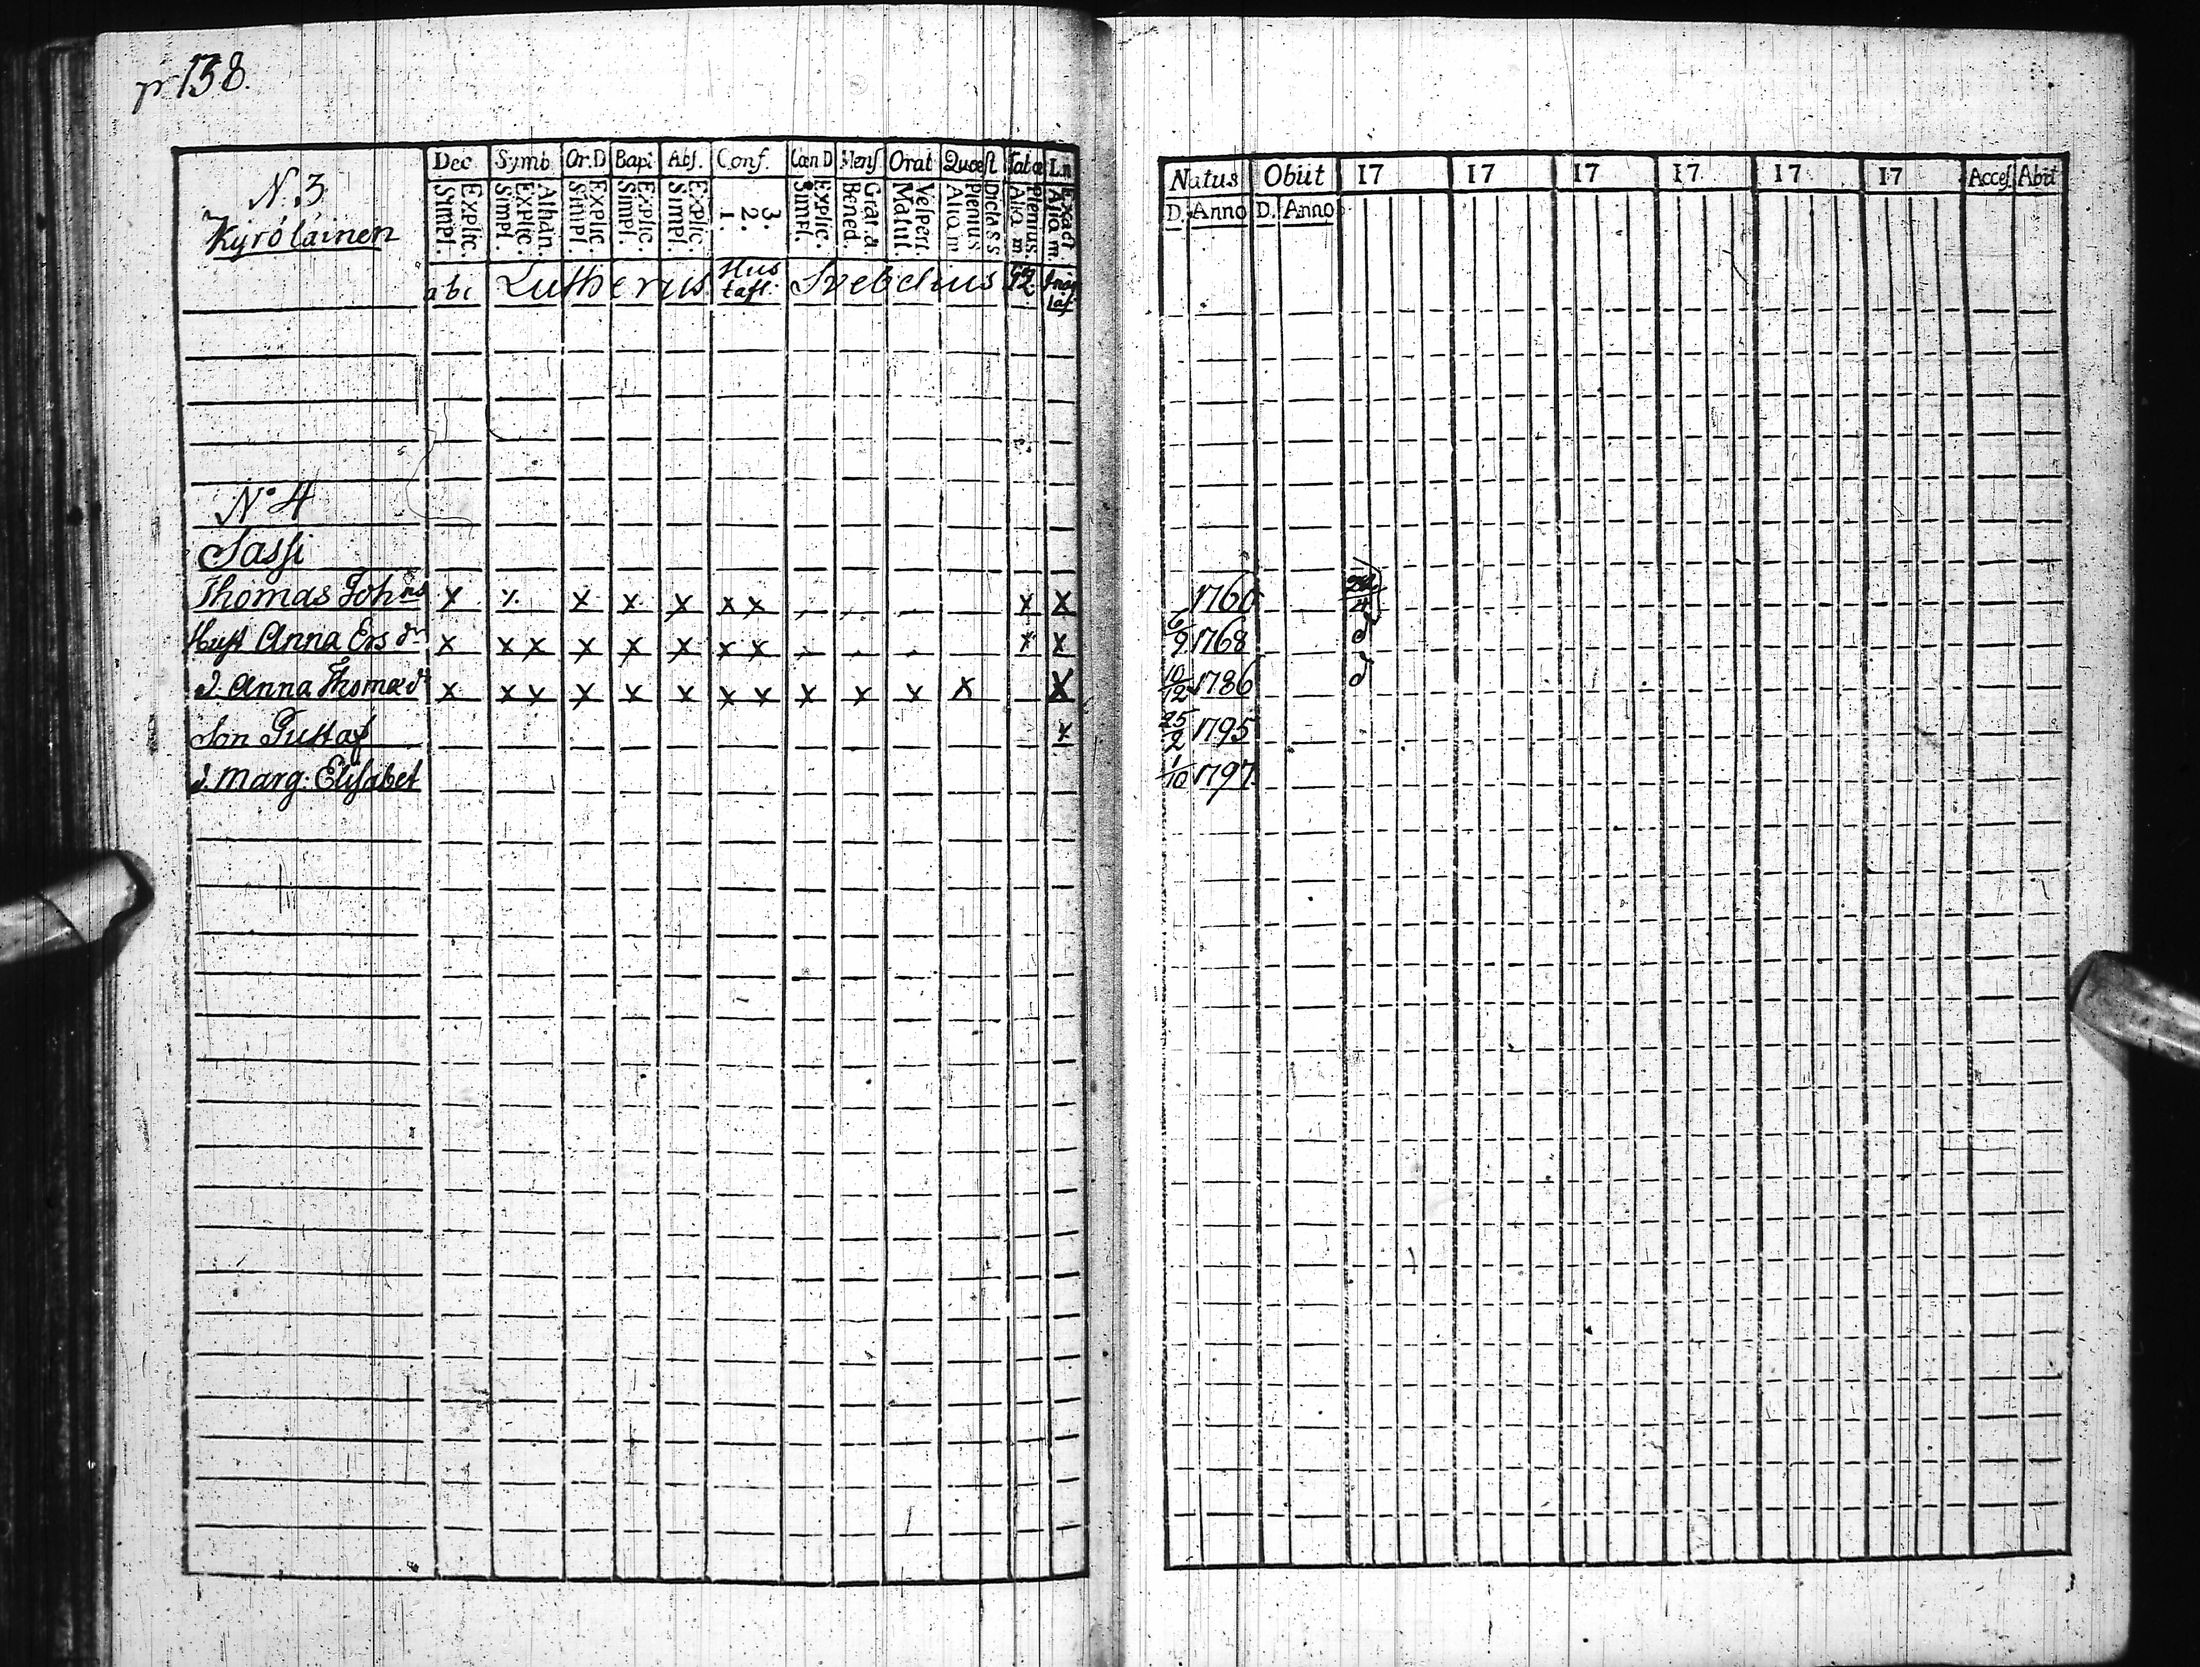 p 138.
N. 3
Kyröläinen
Dec Symb Or.D Bapt Abs. Conf. Cœn D Mens Orat Quœst Tabœ Ln
Explic. Simpl.
Athan. Explic. Simpl.
Explic. Simpl.
Explic. Simpl.
Explic. Simpl.
3. 2. 1.
Explic. Simpl.
Grat. a. Bened.
Vespert. Matut.
Dicta ss Plenius Aliq m.
Plenius. Aliq m.
Exact Aliq m.
abc Lutherus Hus tafl. Svebelius
N° 4
Sassi
Thomas Johns x x x x x x x x x
Hust Anna Ers dr x x x x x x x x x x
d. Anna Thomæ dr x x x x x x x x x x x x x
Son Gustaf x
d. Marg. Elisabet
Natus Obiit 17 17 17 17 17 17 Acces. Abit
D. Anno D. Anno
1760
6/9 1768
10/12 1786
25/2 1795
1/10 1797